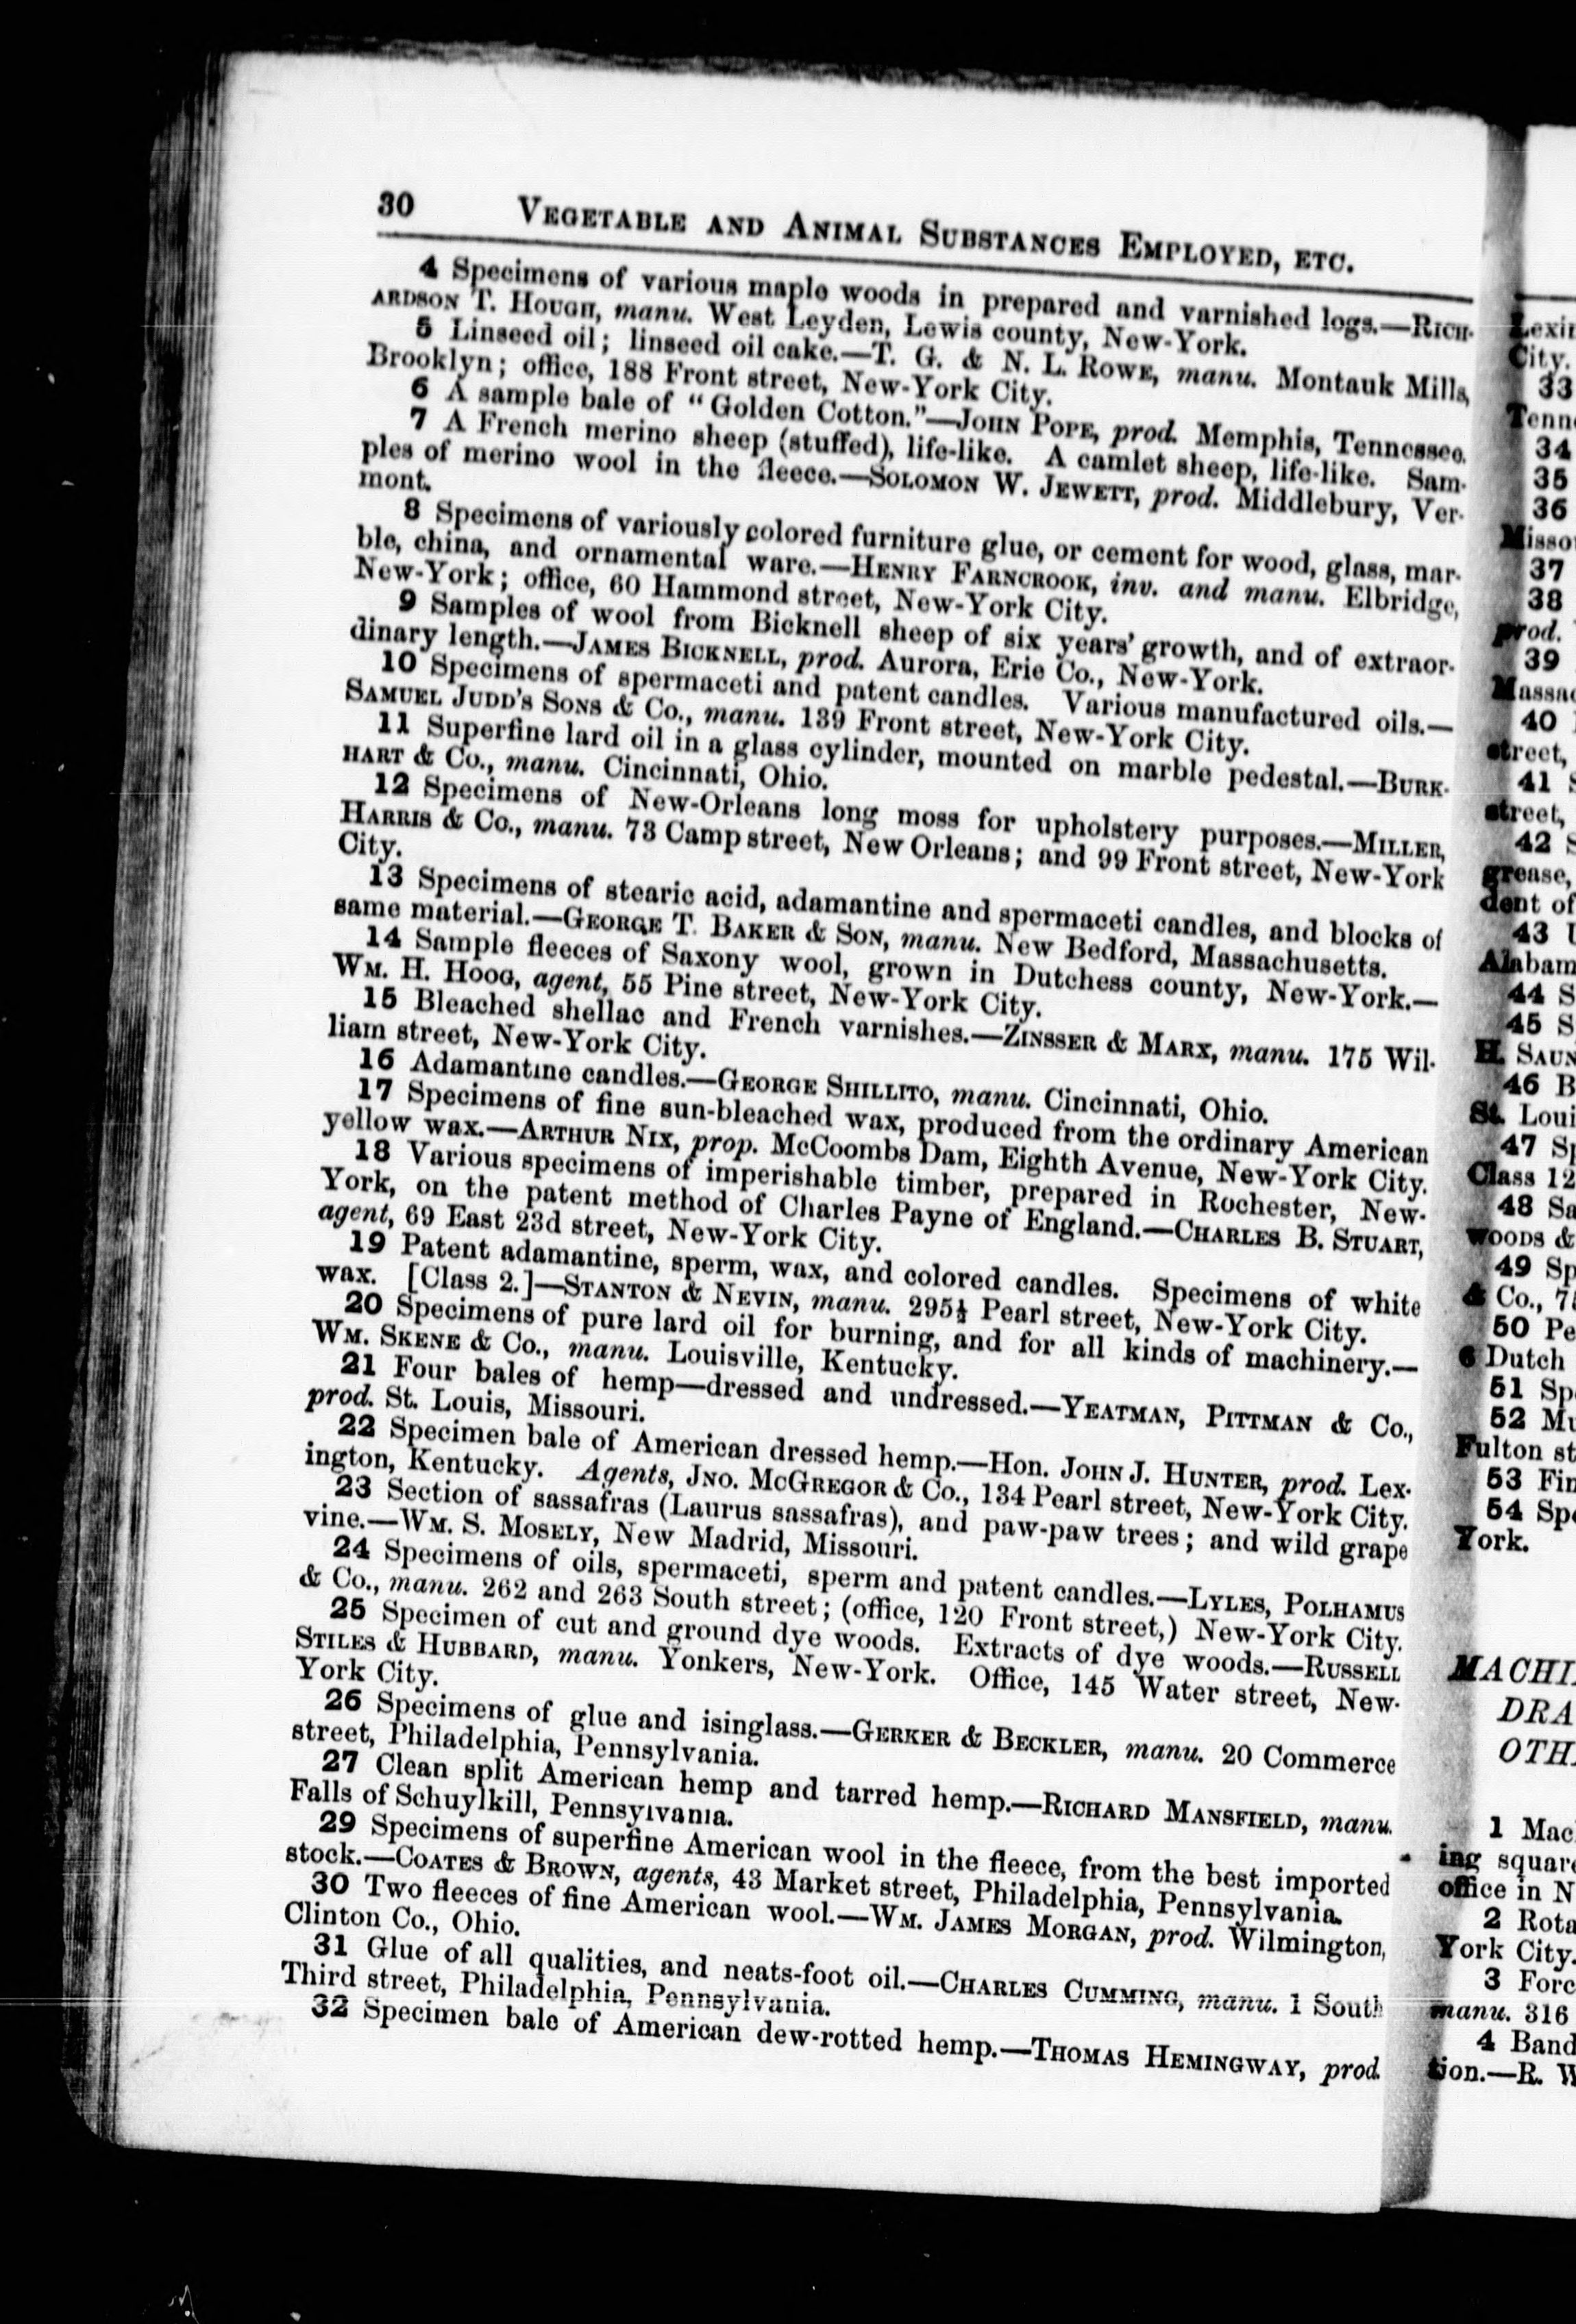 30 VEGETABLE AND ANIMAL SUBSTANCES EMPLOYED, ETC.
4 Specimens of various maple woods in prepared and varnished logs.—RICH-
ARDSON T. HOUGH, manu. West Leyden, Lewis county, New-York.
5 Linseed oil; linseed oil cake.—T. G. & N. L. ROWE, manu. Montauk Mills,
Brooklyn; office, 188 Front street, New-York City.
6 A sample bale of "Golden Cotton."—JOHN POPE, prod. Memphis, Tennessee.
7 A French merino sheep (stuffed), life-like. A camlet sheep, life-like. Sam-
ples of merino wool in the fleece.—SOLOMON W. JEWETT, prod. Middlebury, Ver-
mont.
8 Specimens of variously colored furniture glue, or cement for wood, glass, mar-
ble, china, and ornamental ware.—HENRY FARNCROOK, inv. and manu. Elbridge,
New-York; office, 60 Hammond street, New-York City.
9 Samples of wool from Bicknell sheep of six years' growth, and of extraor-
dinary length.—JAMES BICKNELL, prod. Aurora, Erie Co., New-York.
10 Specimens of spermaceti and patent candles. Various manufactured oils.—
SAMUEL JUDD'S SONS & Co., manu. 139 Front street, New-York City.
11 Superfine lard oil in a glass cylinder, mounted on marble pedestal.—BURK-
HART & Co., manu. Cincinnati, Ohio.
12 Specimens of New-Orleans long moss for upholstery purposes.—MILLER,
HARRIS & Co., manu. 73 Camp street, New Orleans; and 99 Front street, New-York
City.
13 Specimens of stearic acid, adamantine and spermaceti candles, and blocks of
same material.—GEORGE T. BAKER & SON, manu. New Bedford, Massachusetts.
14 Sample fleeces of Saxony wool, grown in Dutchess county, New-York.—
WM. H. HOOG, agent, 55 Pine street, New-York City.
15 Bleached shellac and French varnishes.—ZINSSER & MARX, manu. 175 Wil-
liam street, New-York City.
16 Adamantine candles.—GEORGE SHILLITO, manu. Cincinnati, Ohio.
17 Specimens of fine sun-bleached wax, produced from the ordinary American
yellow wax.—ARTHUR NIX, prop. McCoombs Dam, Eighth Avenue, New-York City.
18 Various specimens of imperishable timber, prepared in Rochester, New-
York, on the patent method of Charles Payne of England.—CHARLES B. STUART,
agent, 69 East 23d street, New-York City.
19 Patent adamantine, sperm, wax, and colored candles. Specimens of white
wax. [Class 2.]—STANTON & NEVIN, manu. 295½ Pearl street, New-York City.
20 Specimens of pure lard oil for burning, and for all kinds of machinery.—
WM. SKENE & Co., manu. Louisville, Kentucky.
21 Four bales of hemp—dressed and undressed.—YEATMAN, PITTMAN & Co.,
prod. St. Louis, Missouri.
22 Specimen bale of American dressed hemp.—Hon. JOHN J. HUNTER, prod. Lex-
ington, Kentucky. Agents, JNO. MCGREGOR & Co., 134 Pearl street, New-York City.
23 Section of sassafras (Laurus sassafras), and paw-paw trees; and wild grape
vine.—WM. S. MOSELY, New Madrid, Missouri.
24 Specimens of oils, spermaceti, sperm and patent candles.—LYLES, POLHAMUS
& Co., manu. 262 and 263 South street; (office, 120 Front street,) New-York City.
25 Specimen of cut and ground dye woods. Extracts of dye woods.—RUSSELL
STILES & HUBBARD, manu. Yonkers, New-York. Office, 145 Water street, New-
York City.
26 Specimens of glue and isinglass.—GERKER & BECKLER, manu. 20 Commerce
street, Philadelphia, Pennsylvania.
27 Clean split American hemp and tarred hemp.—RICHARD MANSFIELD, manu.
Falls of Schuylkill, Pennsylvania.
29 Specimens of superfine American wool in the fleece, from the best imported
stock.—COATES & BROWN, agents, 43 Market street, Philadelphia, Pennsylvania.
30 Two fleeces of fine American wool.—WM. JAMES MORGAN, prod. Wilmington,
Clinton Co., Ohio.
31 Glue of all qualities, and neats-foot oil.—CHARLES CUMMING, manu. 1 South
Third street, Philadelphia, Pennsylvania.
32 Specimen bale of American dew-rotted hemp.—THOMAS HEMINGWAY, prod.
City.
33
34
35
36
37
38
prod.
39
40
street,
41
street,
42
grease,
dent of
43
44
45
46
47
Class 12
48
49
& Co.,
50
6 Dutch
51
52
53
54
York.
1
ing
office in
2
York City.
3
manu. 316
4